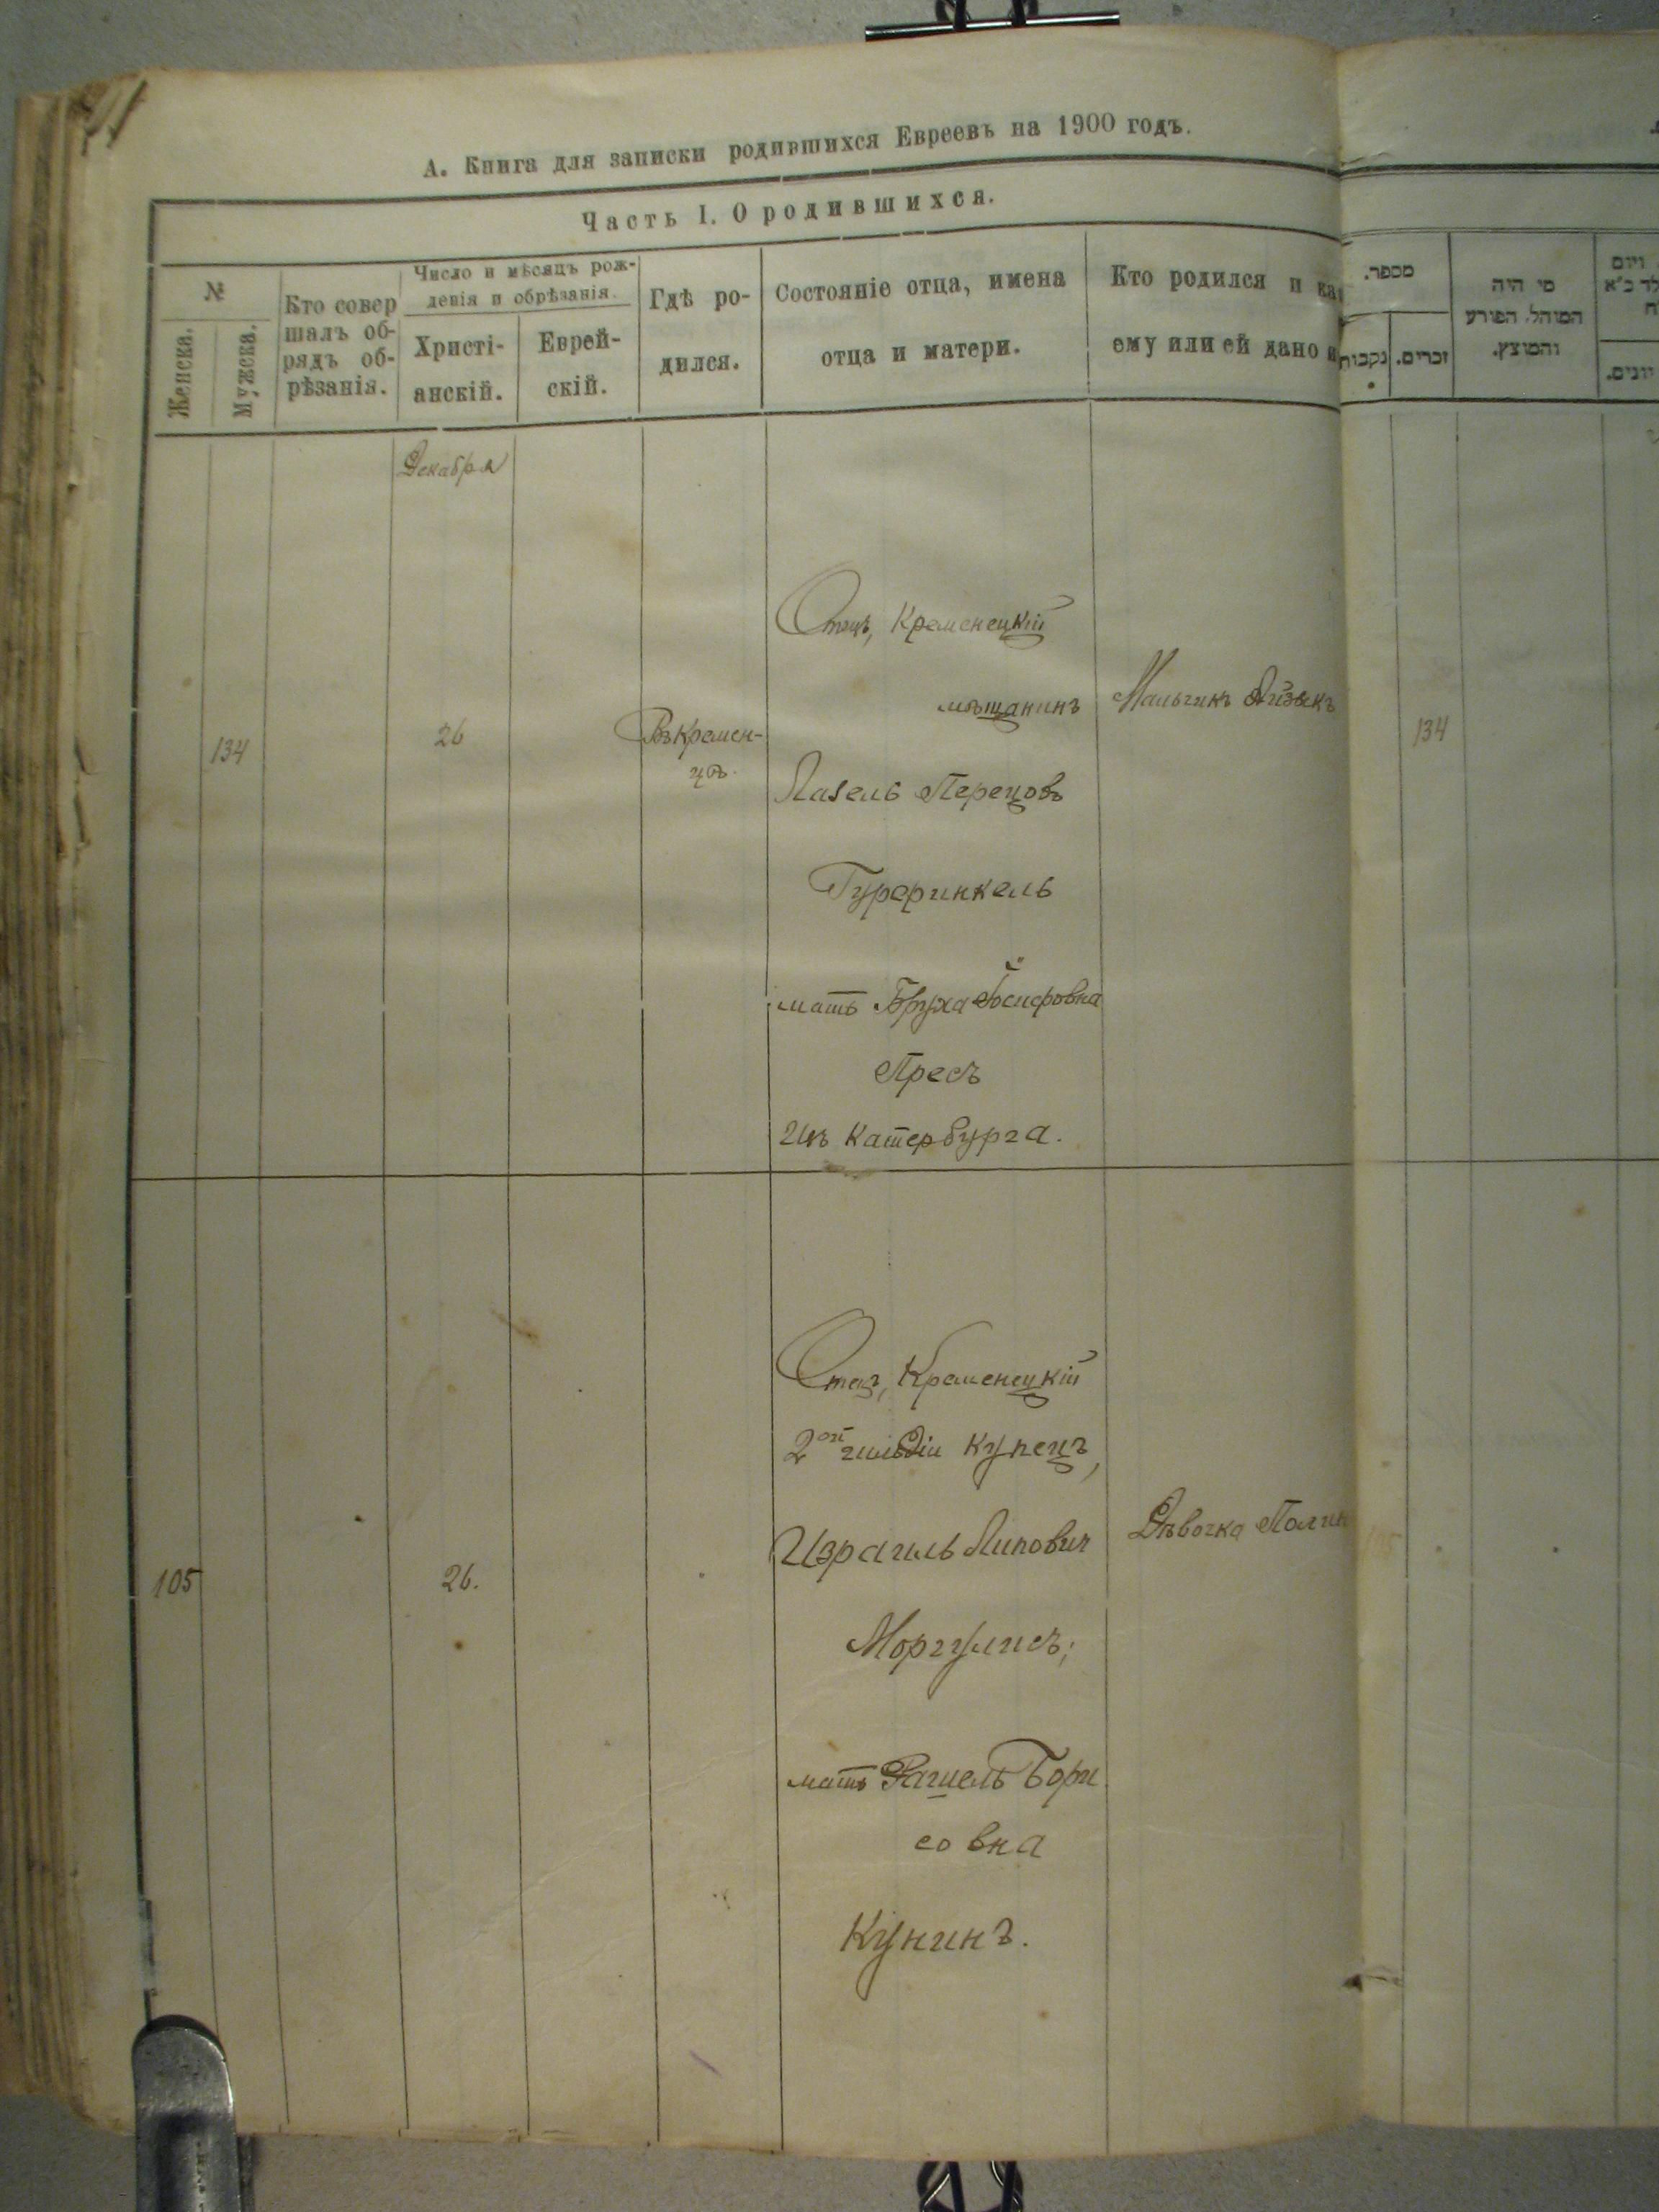 А. Книга для записки родившихся Евреевъ на 1900 годъ.
Часть I. О родившихся.
№
Женска.
Мужска.
Кто совер
шалъ об-
рядъ об-
рѣзанія.
Число и мѣсяцъ рож-
денія и обрѣзанія.
Христі-
анскій.
Еврей-
скій.
Гдѣ ро-
дился.
Состояніе отца, имена
отца и матери.
Кто родился и ка
ему или ей дано и
מספר.
נקבות
זכרים.
מי היה
המוהל. הפורע
והמוצץ.
ויום
יונים.
Декабря
134
26
Въ Кремен-
цѣ.
Отецъ, Кременецкій
мѣщанинъ
Лазель Перецовъ
Гурфинкель
мать Бруха Іосифовна
Пресъ
Изъ Катербурга.
Мальчикъ Айзыкъ
134
105
26.
Отец, Кременецкій
2ой гильдіи Купецъ,
Израиль Липович
Моргулисъ;
мать Рашель Бори
совна
Кунинъ.
Дѣвочка Полин